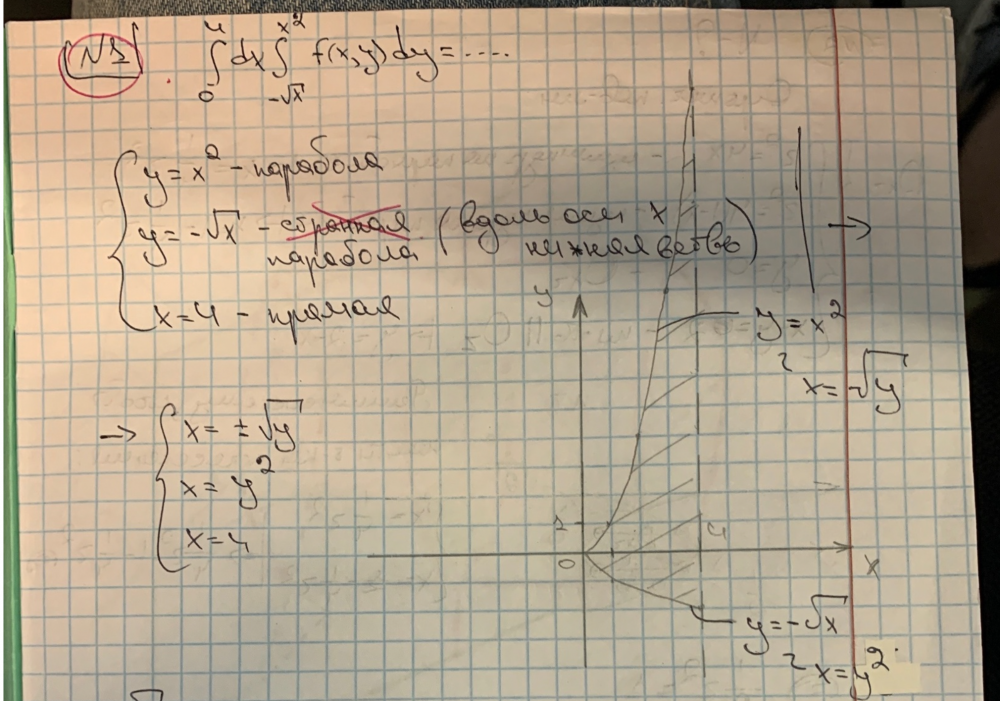 №3
∫₀⁴ dx ∫_{-√x}^{x²} f(x,y) dy = ....
y = x² - парабола
y = -√x - странная
парабола (вдоль оси x
нижная ветвь) →
x = 4 - прямая
y
y = x²
x = √y
→ x = ±√y
x = y²
x = 4
1
4
0
x
y = -√x
x = y²